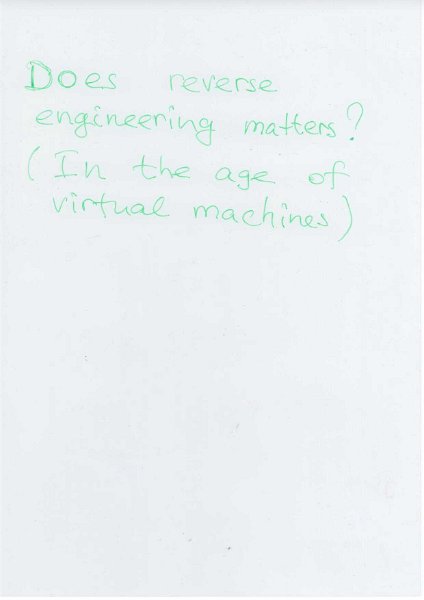 Does reverse
engineering matters?
(In the age of
virtual machines)